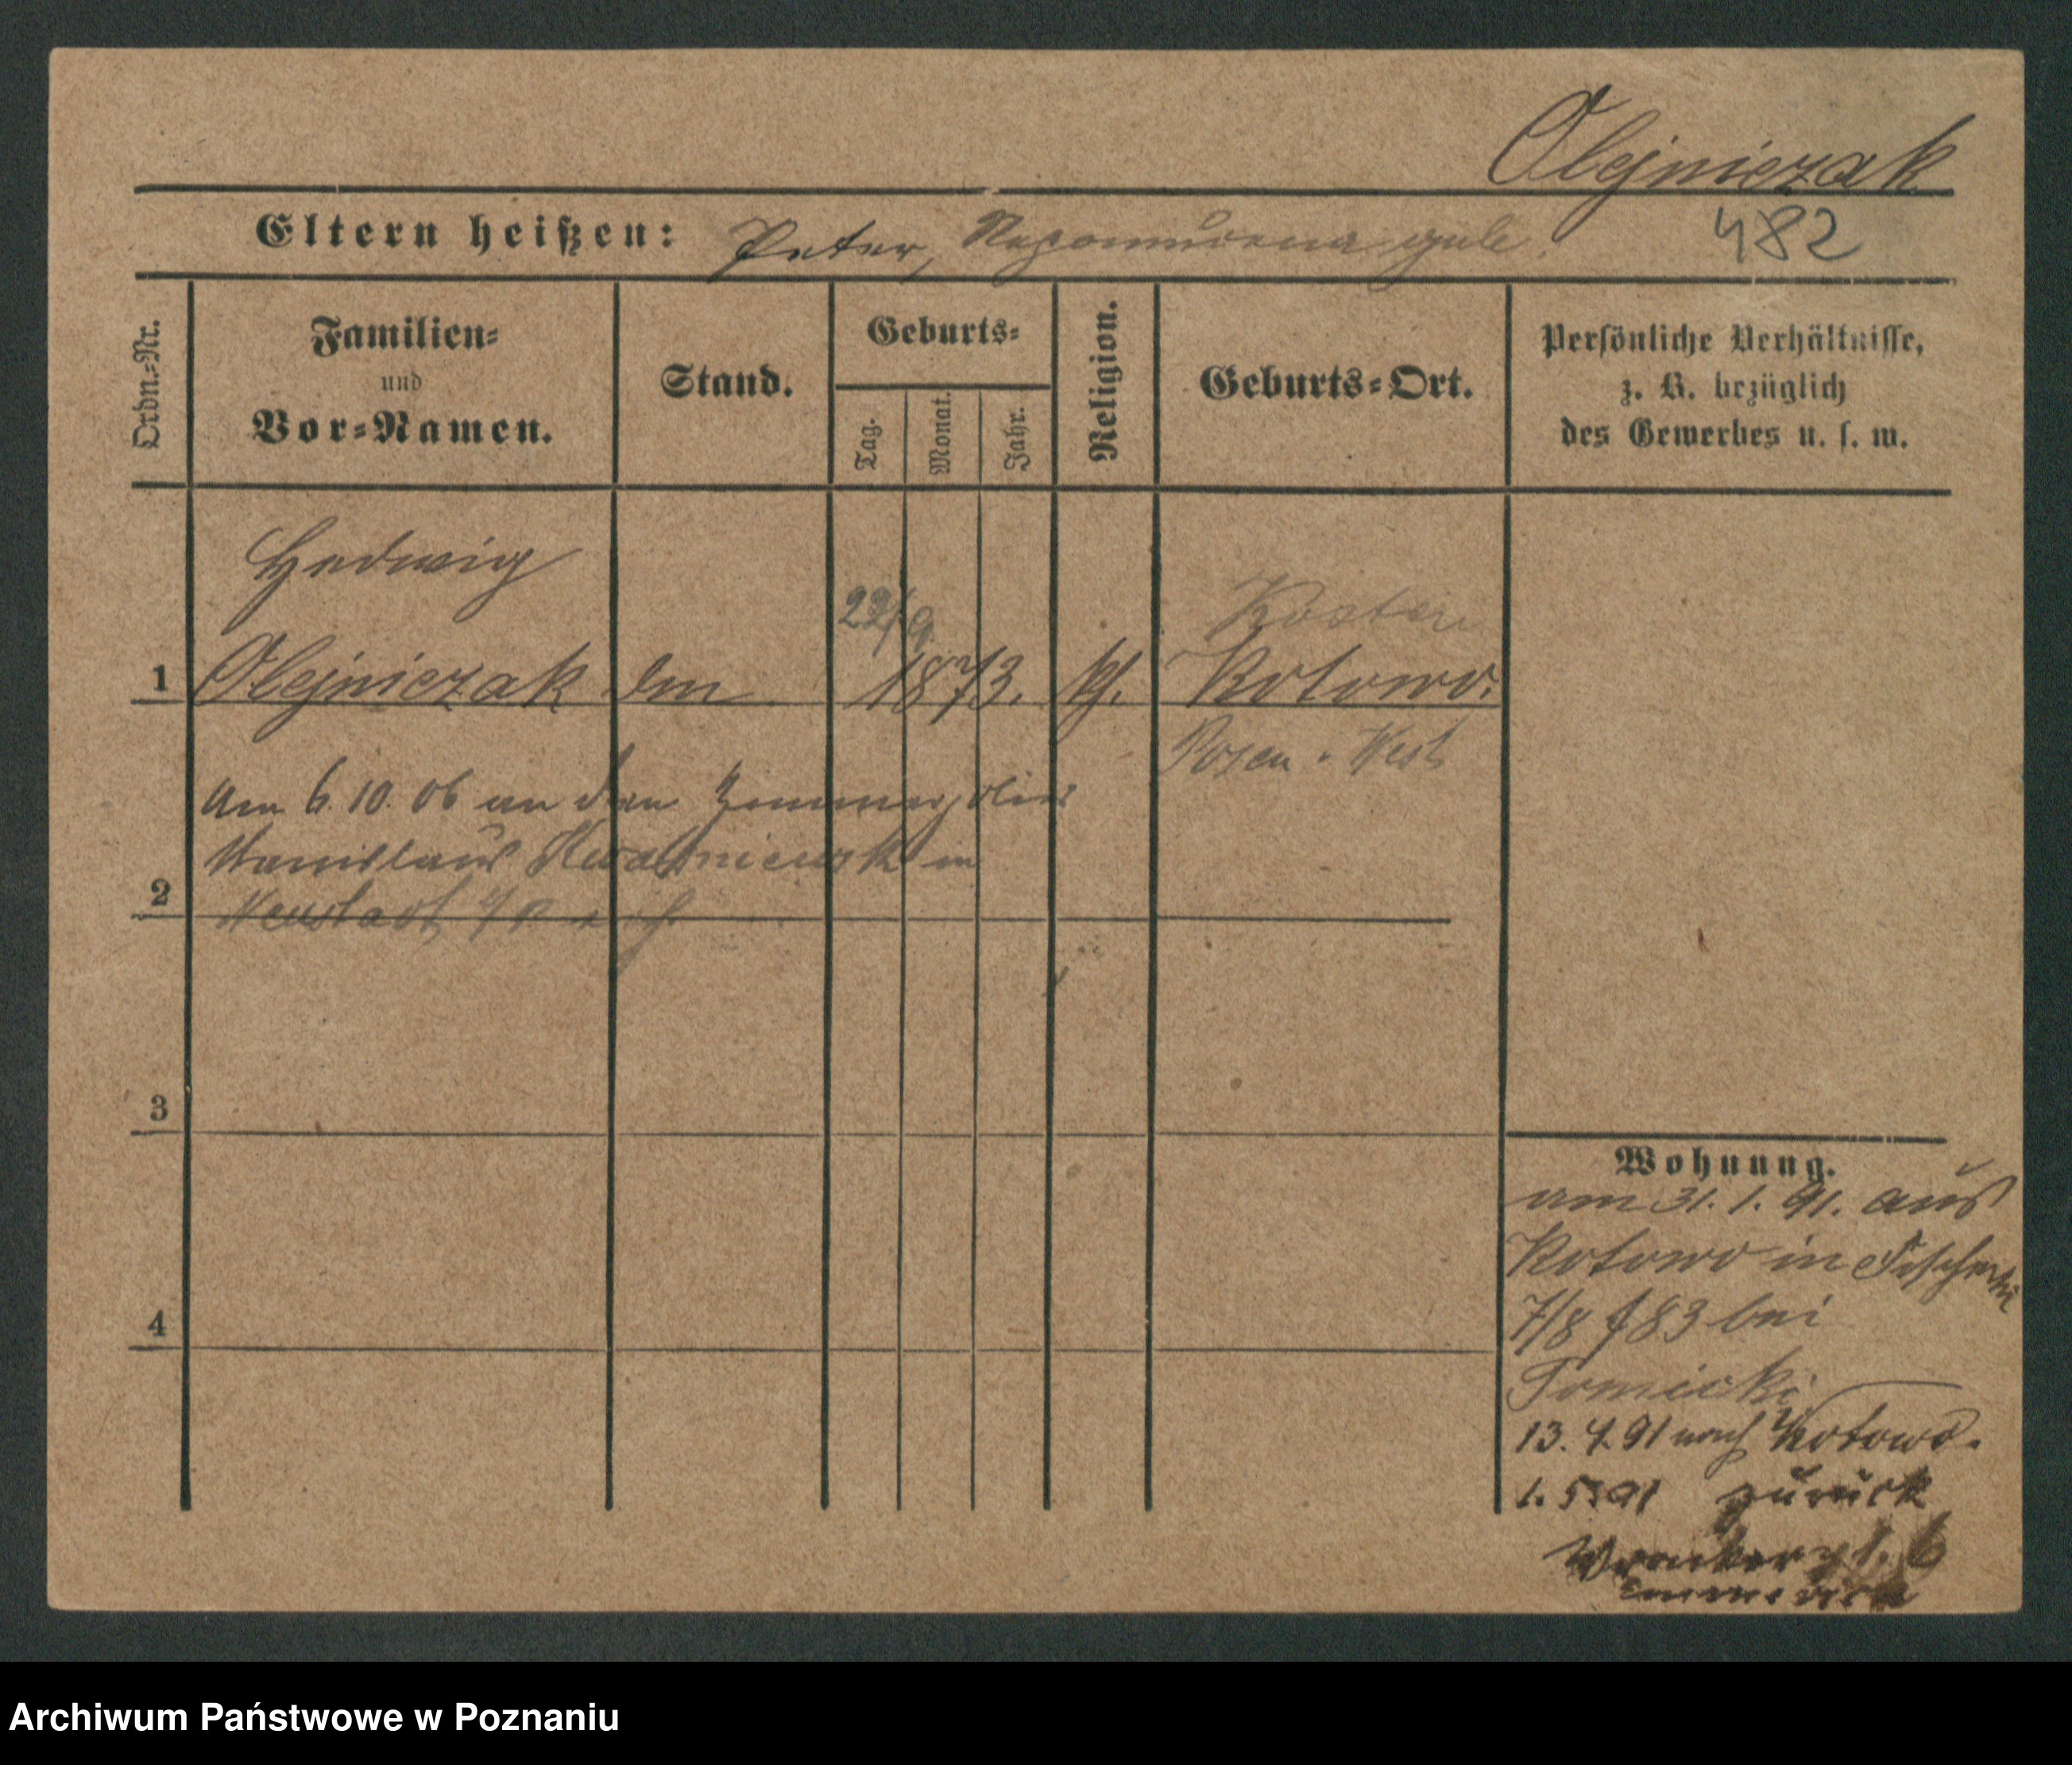 Olejniczak
Eltern heißen: Peter, Nepomucena
482
Ordn.-Nr.
Familien-
und
Vor-Namen.
Stand.
Geburts-
Tag.
Monat.
Jahr.
Religion.
Geburts-Ort.
Persönliche Verhältnisse,
z. B. bezüglich
des Gewerbes u. s. w.
Hedwig
22/9
Kosten
1 Olejniczak 1873. kh. Kotowo.
Posen - West
Am 6. 10. 06 an den Zimmerpolier
Stanislaus in
2
Neustadt
3
4
Wohnung.
am 31. 1. 91. aus
Kotowo in Fischerei
7/8 bei
Tomicki
13. 4. 91 nach Kotowo.
1. 5. 91 zurück
Wronkerstr. 6
Archiwum Państwowe w Poznaniu